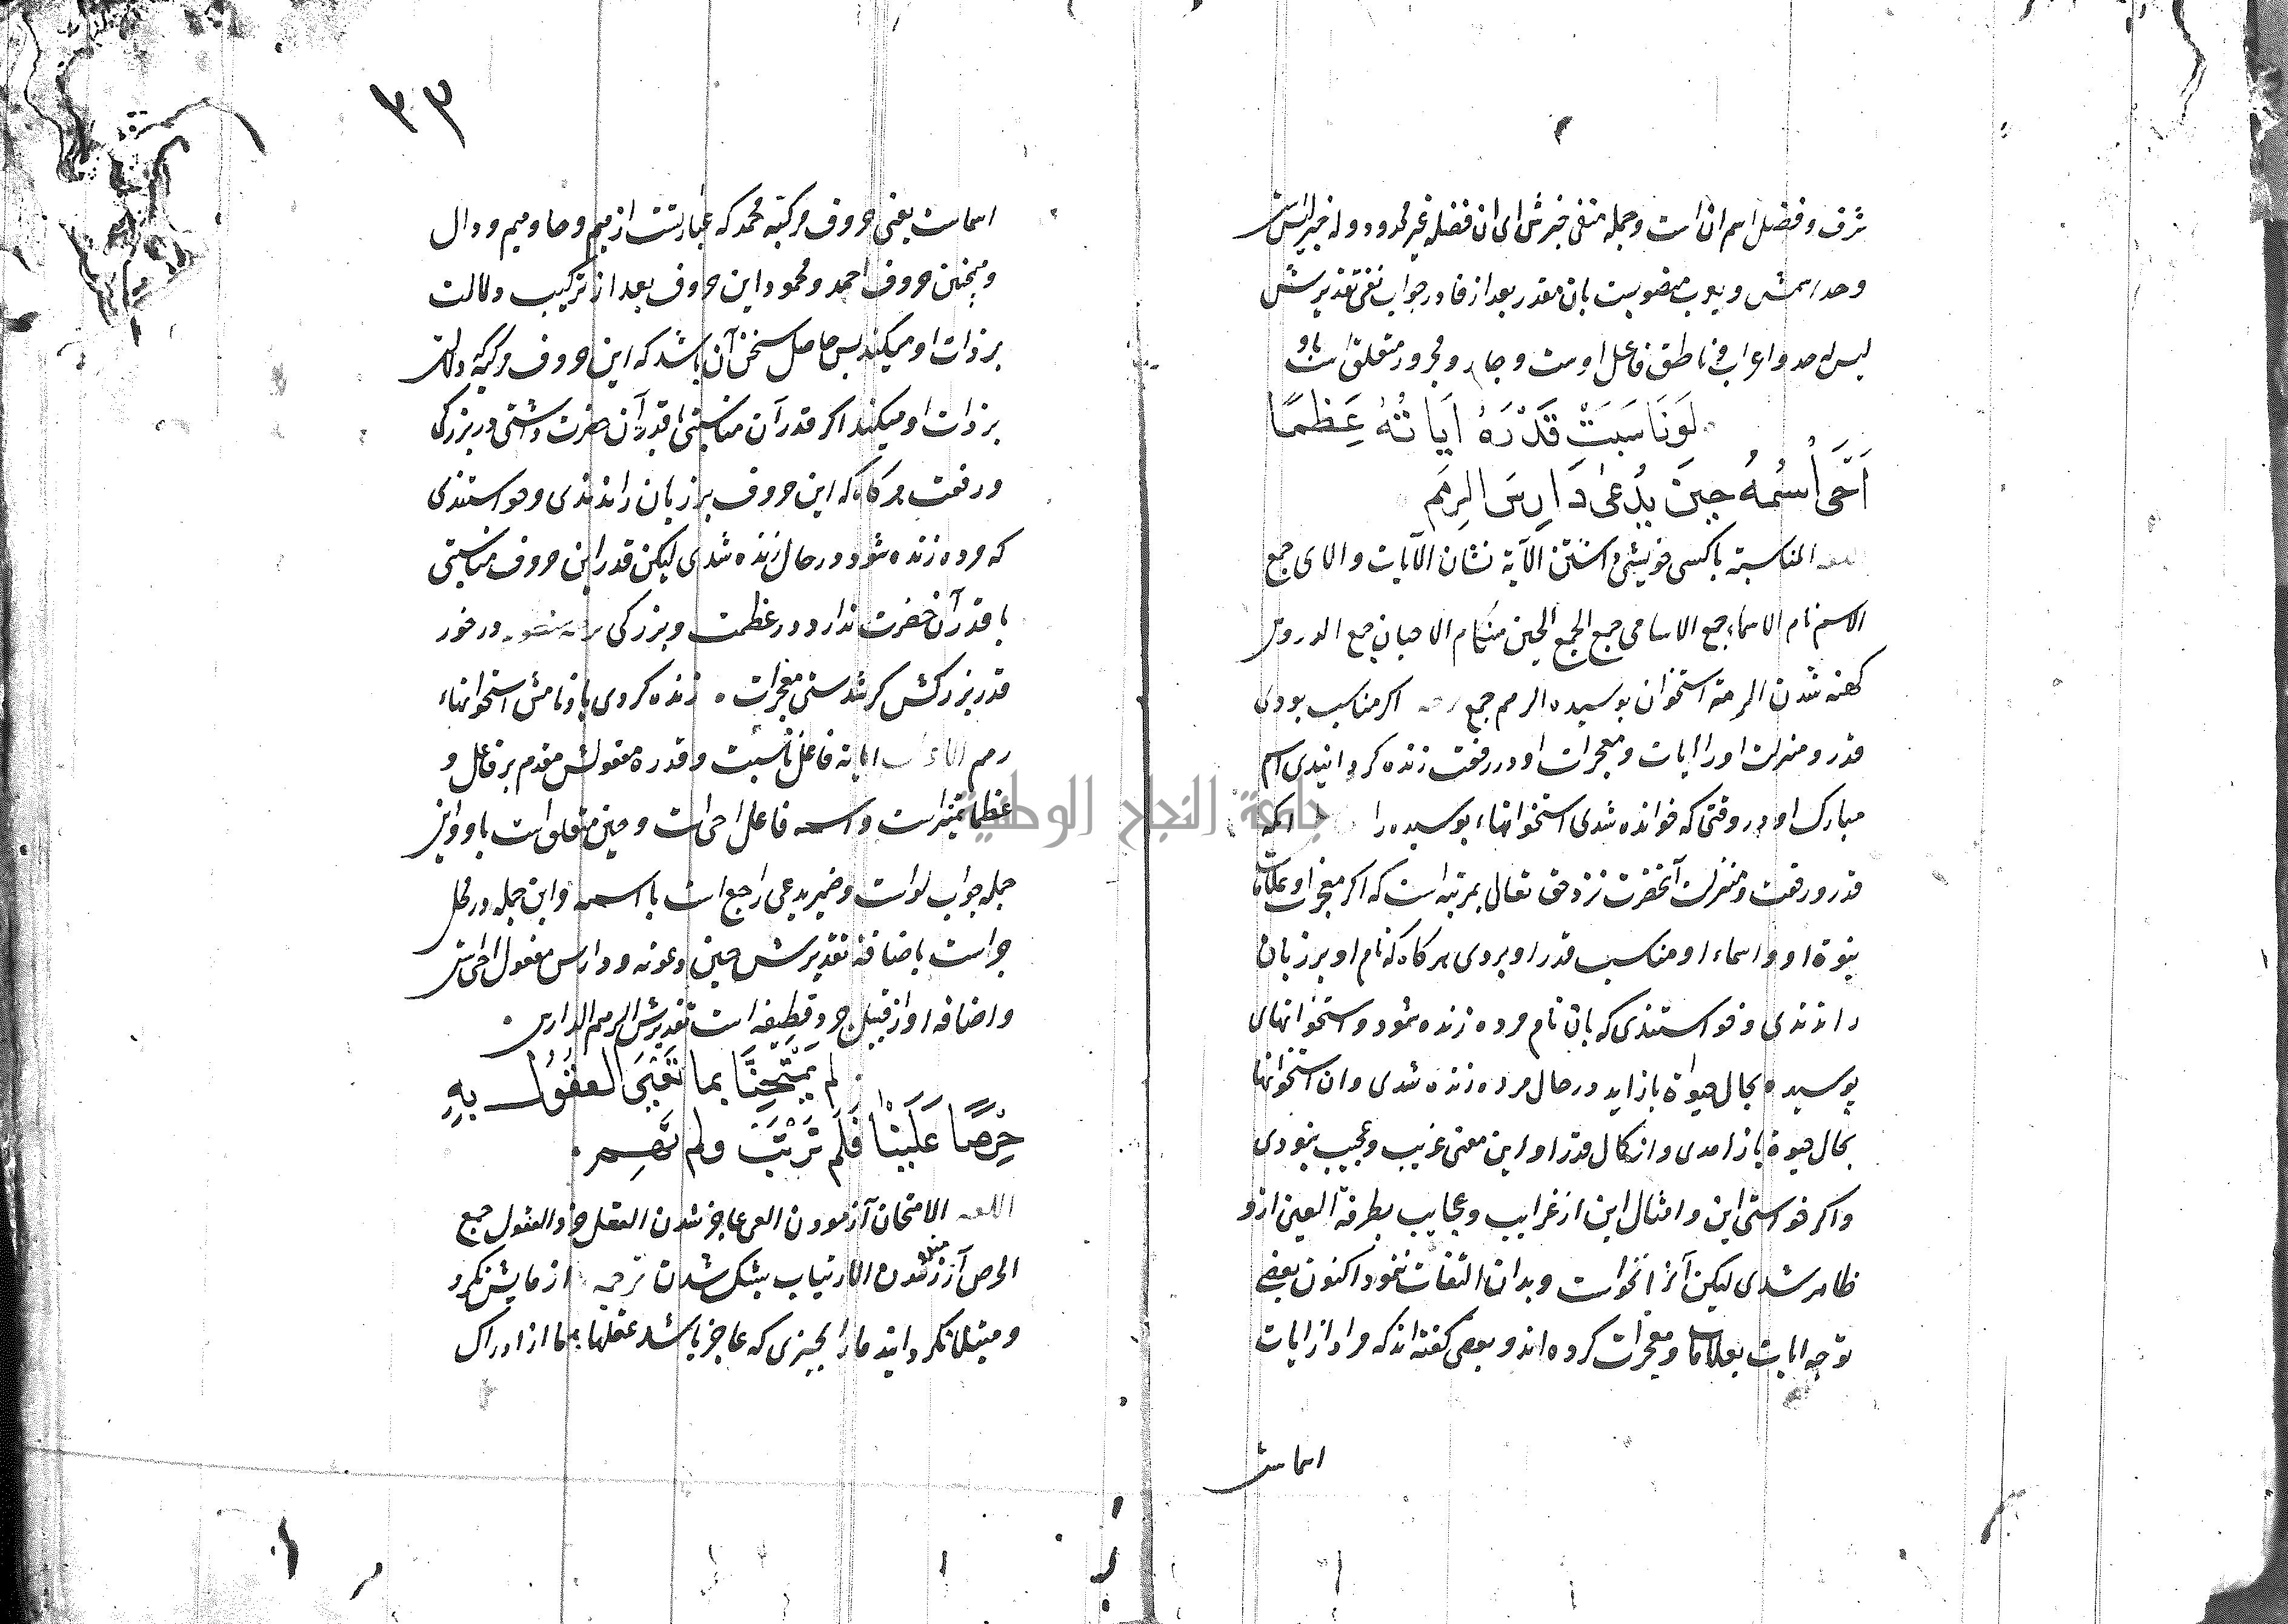 شرف و فضل اسم ان است و جمله منفی خبرش ای ان فضله غیر محدود و له خبر لیس است
و حد اسمش و یعرب منصوبست بان مقدر بعد از فا در جواب نفی تقدیرش
لیس له حد و اعراب و ناطق فاعل اوست و جار و مجرور متعلق است باو
لَوْ نَاسَبَتْ قَدْرَهُ اٰیَاتُهُ عِظَمًا
اَحْیَی اسْمُهُ حِینَ یُدْعیٰ دَارِسَ الرِمَمِ
اللغه المناسبة باکسی خویشی داشتن الآیة نشان الآیات و الای جمع
الاسم نام الاسماء جمع الاسامی جمع الجمع الحین هنکام الاحیان جمع الدروس
کهنه شدن الرمة استخوان بوسیده الرمم جمع اکر مناسب بودی
قدر و منزلت اورا ایات و معجزات او در رفعت زنده کردانیدی اسم
مبارک او در وقتی که خوانده شدی استخوانهاء بوسیده را انکه
قدر و رفعت و منزلت آنحضرت نزد حق تعالی بمرتبه است که اکر معجزات و علامات
نبوة او و اسماء او مناسب قدر او بودی هر کاه که نام او بر زبان
راندندی و خواستندی که بان نام مرده زنده شود و استخوانهای
پوسیده بحال حیوة باز اید در حال مرده زنده شدی و ان استخوانها
بحال حیوة باز امدی و از کمال قدر او این معنی غریب و عجیب ننمودی
و اکر خواستی این و امثال این از غرایب و عجایب بطرفة العین ازو
ظاهر شدی لیکن آنرا نخواست و بدان التفات ننمود اکنون بعضی
توجیه ایات بعلامات و معجزات کرده اند و بعضی کفته اند که مراد از ایات
اسماست
٣٣
اسماست یعنی حروف مرکبه محمد که عبارتست از میم و حا و میم و دال
و همچنین حروف احمد و محمود این حروف بعد از ترکیب دلالت
بر ذات او میکند بس حاصل سخن آن باشد که این حروف مرکبه دلالت
بر ذات او میکند اکر قدر آن مناسبتی با قدر آن حضرت داشتی در بزرکی
و رفعت هر کاه که این حروف بر زبان راندندی و خواستندی
که مرده زنده شود در حال زنده شدی لیکن قدر این حروف مناسبتی
با قدر آن حضرت ندارد در عظمت و بزرکی در خور
قدر بزرکش کر شدستی معجزات زنده کردی یاد نامش استخوانهاء
رمم الاعراب ایاته فاعل ناسبت و قدره مفعولش مقدم بر فاعل و
عظما تمیز است و اسمه فاعل احی است و حین متعلق است باو و این
جمله جواب لو است و ضمیر یدعی راجع است با اسمه و این جمله در محل
جر است باضافه تقدیرش حین دعوته و دارس مفعول احی است
و اضافه او از قبیل جرد قطیفه است تقدیرش الرمم الدارس
لم یَمْتَحِنَّا بما تَعْیَی العقُولُ بِهِ
حِرْصًا عَلَیْنَا فَلَم نَرْتَبْ ولم نَهِم
اللغه الامتحان آزمودن العی عاجز شدن العقل خرد العقول جمع
الحرص آزمند شدن الارتیاب بشک شدن ترجمه ازمایش نکرد
و مبتلا نکردانید مارا بچیزی که عاجز باشد عقلهاء ما از ادراک
جامعة النجاح الوطنية